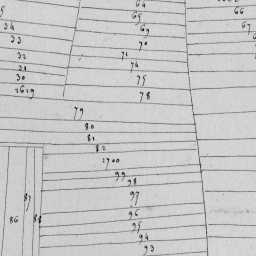 34
33
32
31
30
2629
64
65
69
70
71
74
75
78
66
67
79
80
81
82
2700
99
98
97
96
95
94
93
86
87
88